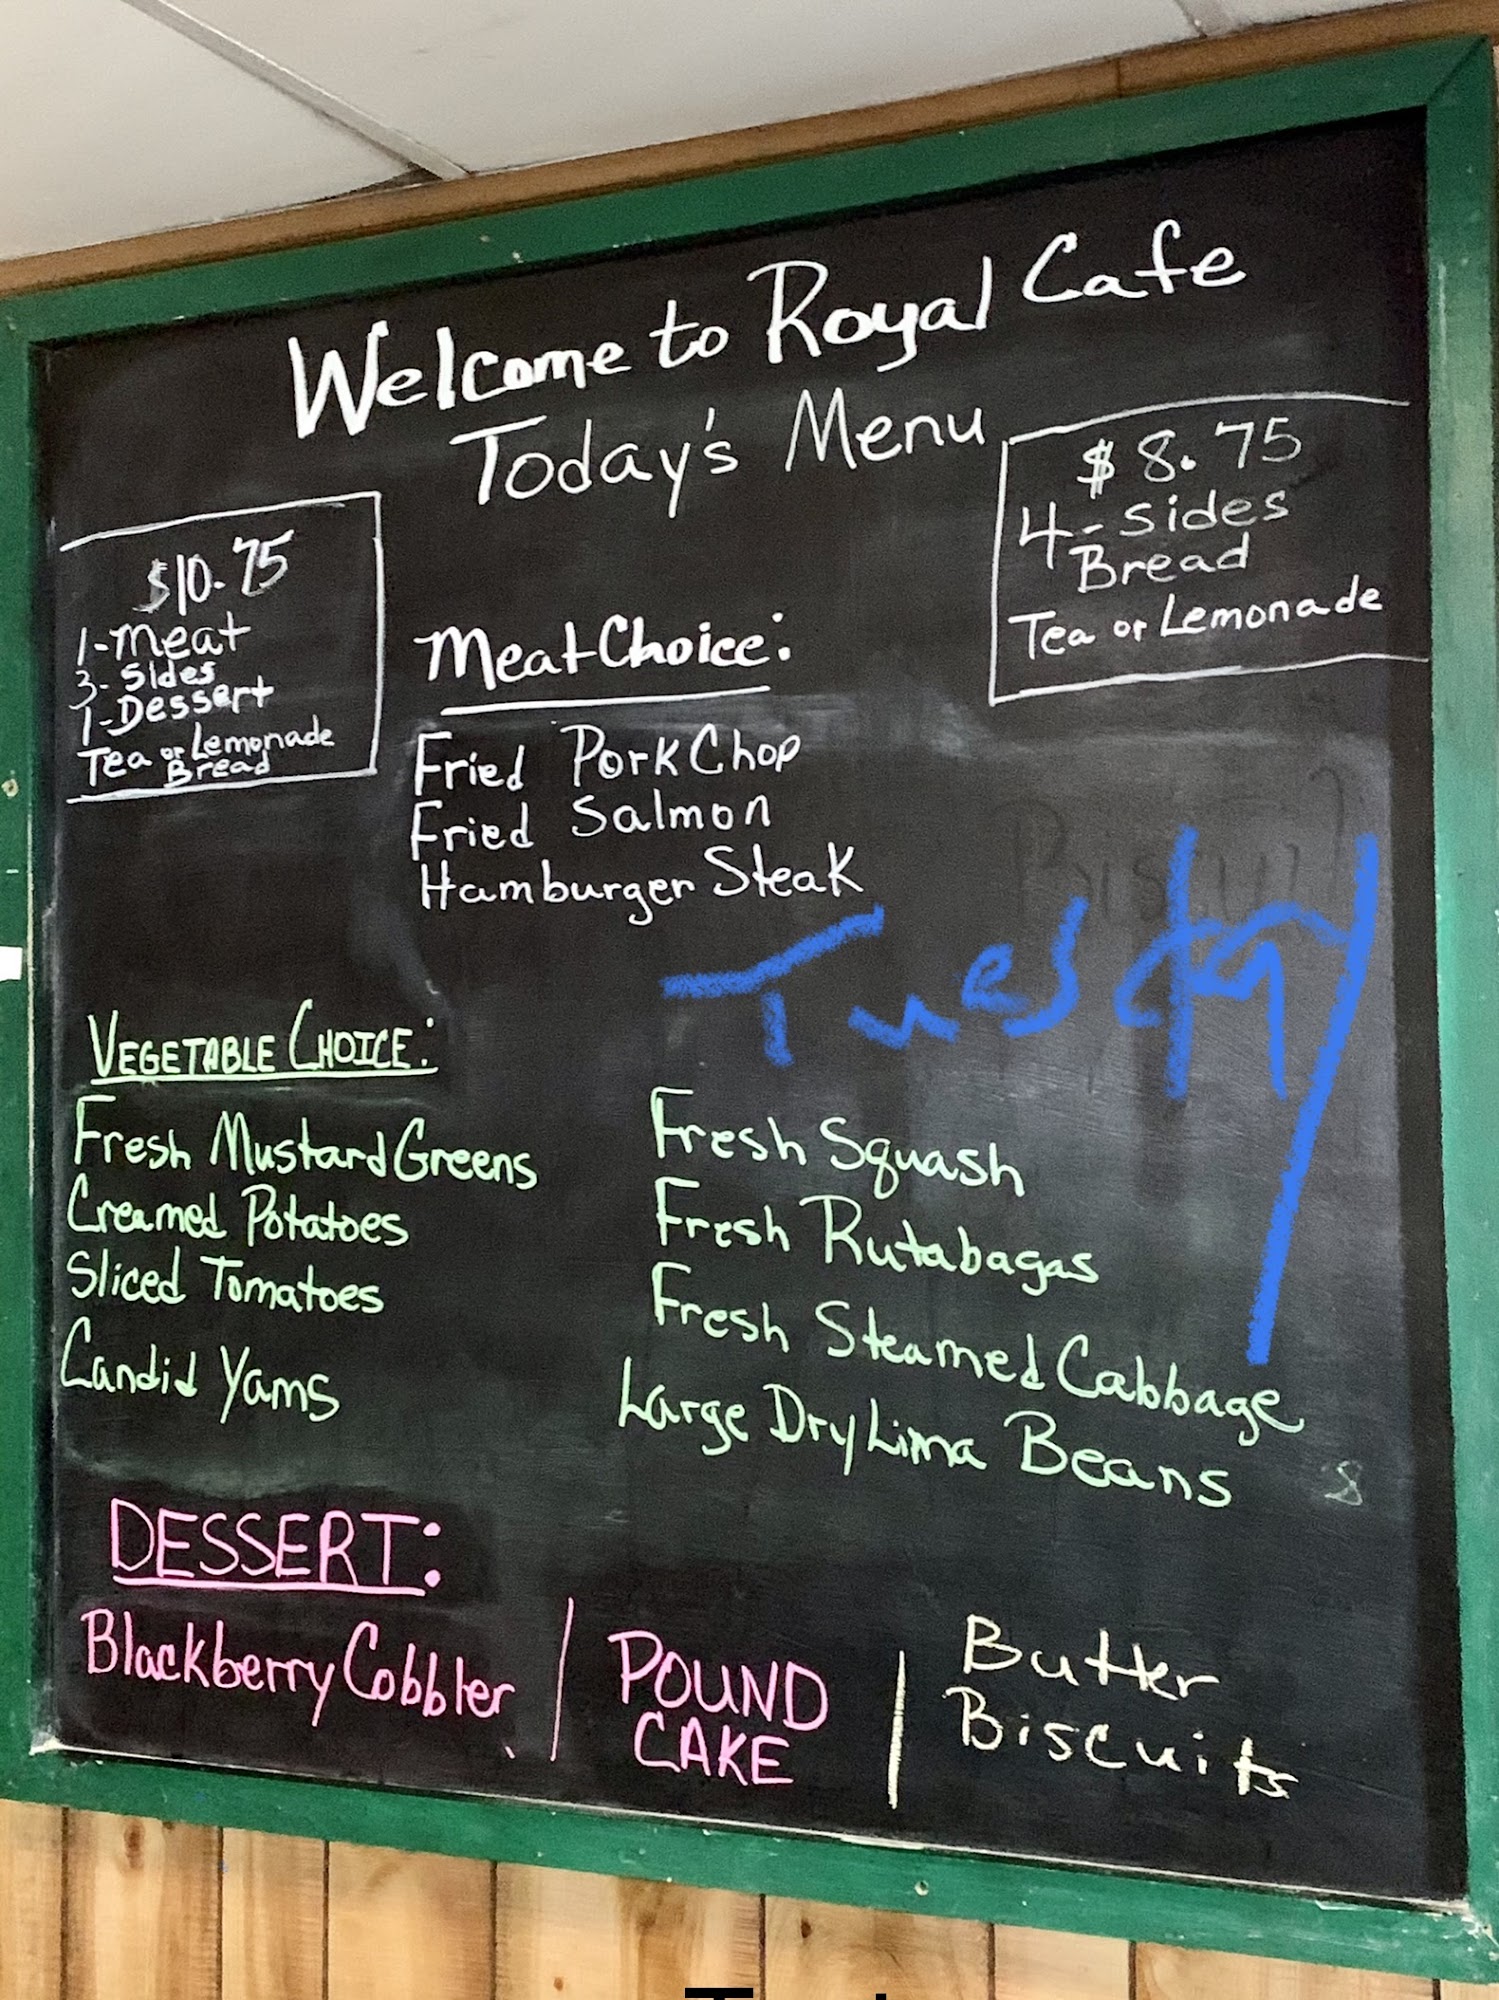 Welcome to Royal Cafe
Today's Menu
$10.75
1-Meat
3-Sides
1-Dessert
Tea or Lemonade
Bread
$8.75
4-Sides
Bread
Tea or Lemonade
Meat Choice:
Fried Pork Chop
Fried Salmon
Hamburger Steak
Tuesday
VEGETABLE CHOICE:
Fresh Mustard Greens
Creamed Potatoes
Sliced Tomatoes
Candid Yams
Fresh Squash
Fresh Rutabagas
Fresh Steamed Cabbage
Large Dry Lima Beans
DESSERT:
Blackberry Cobbler
POUND
CAKE
Butter
Biscuits